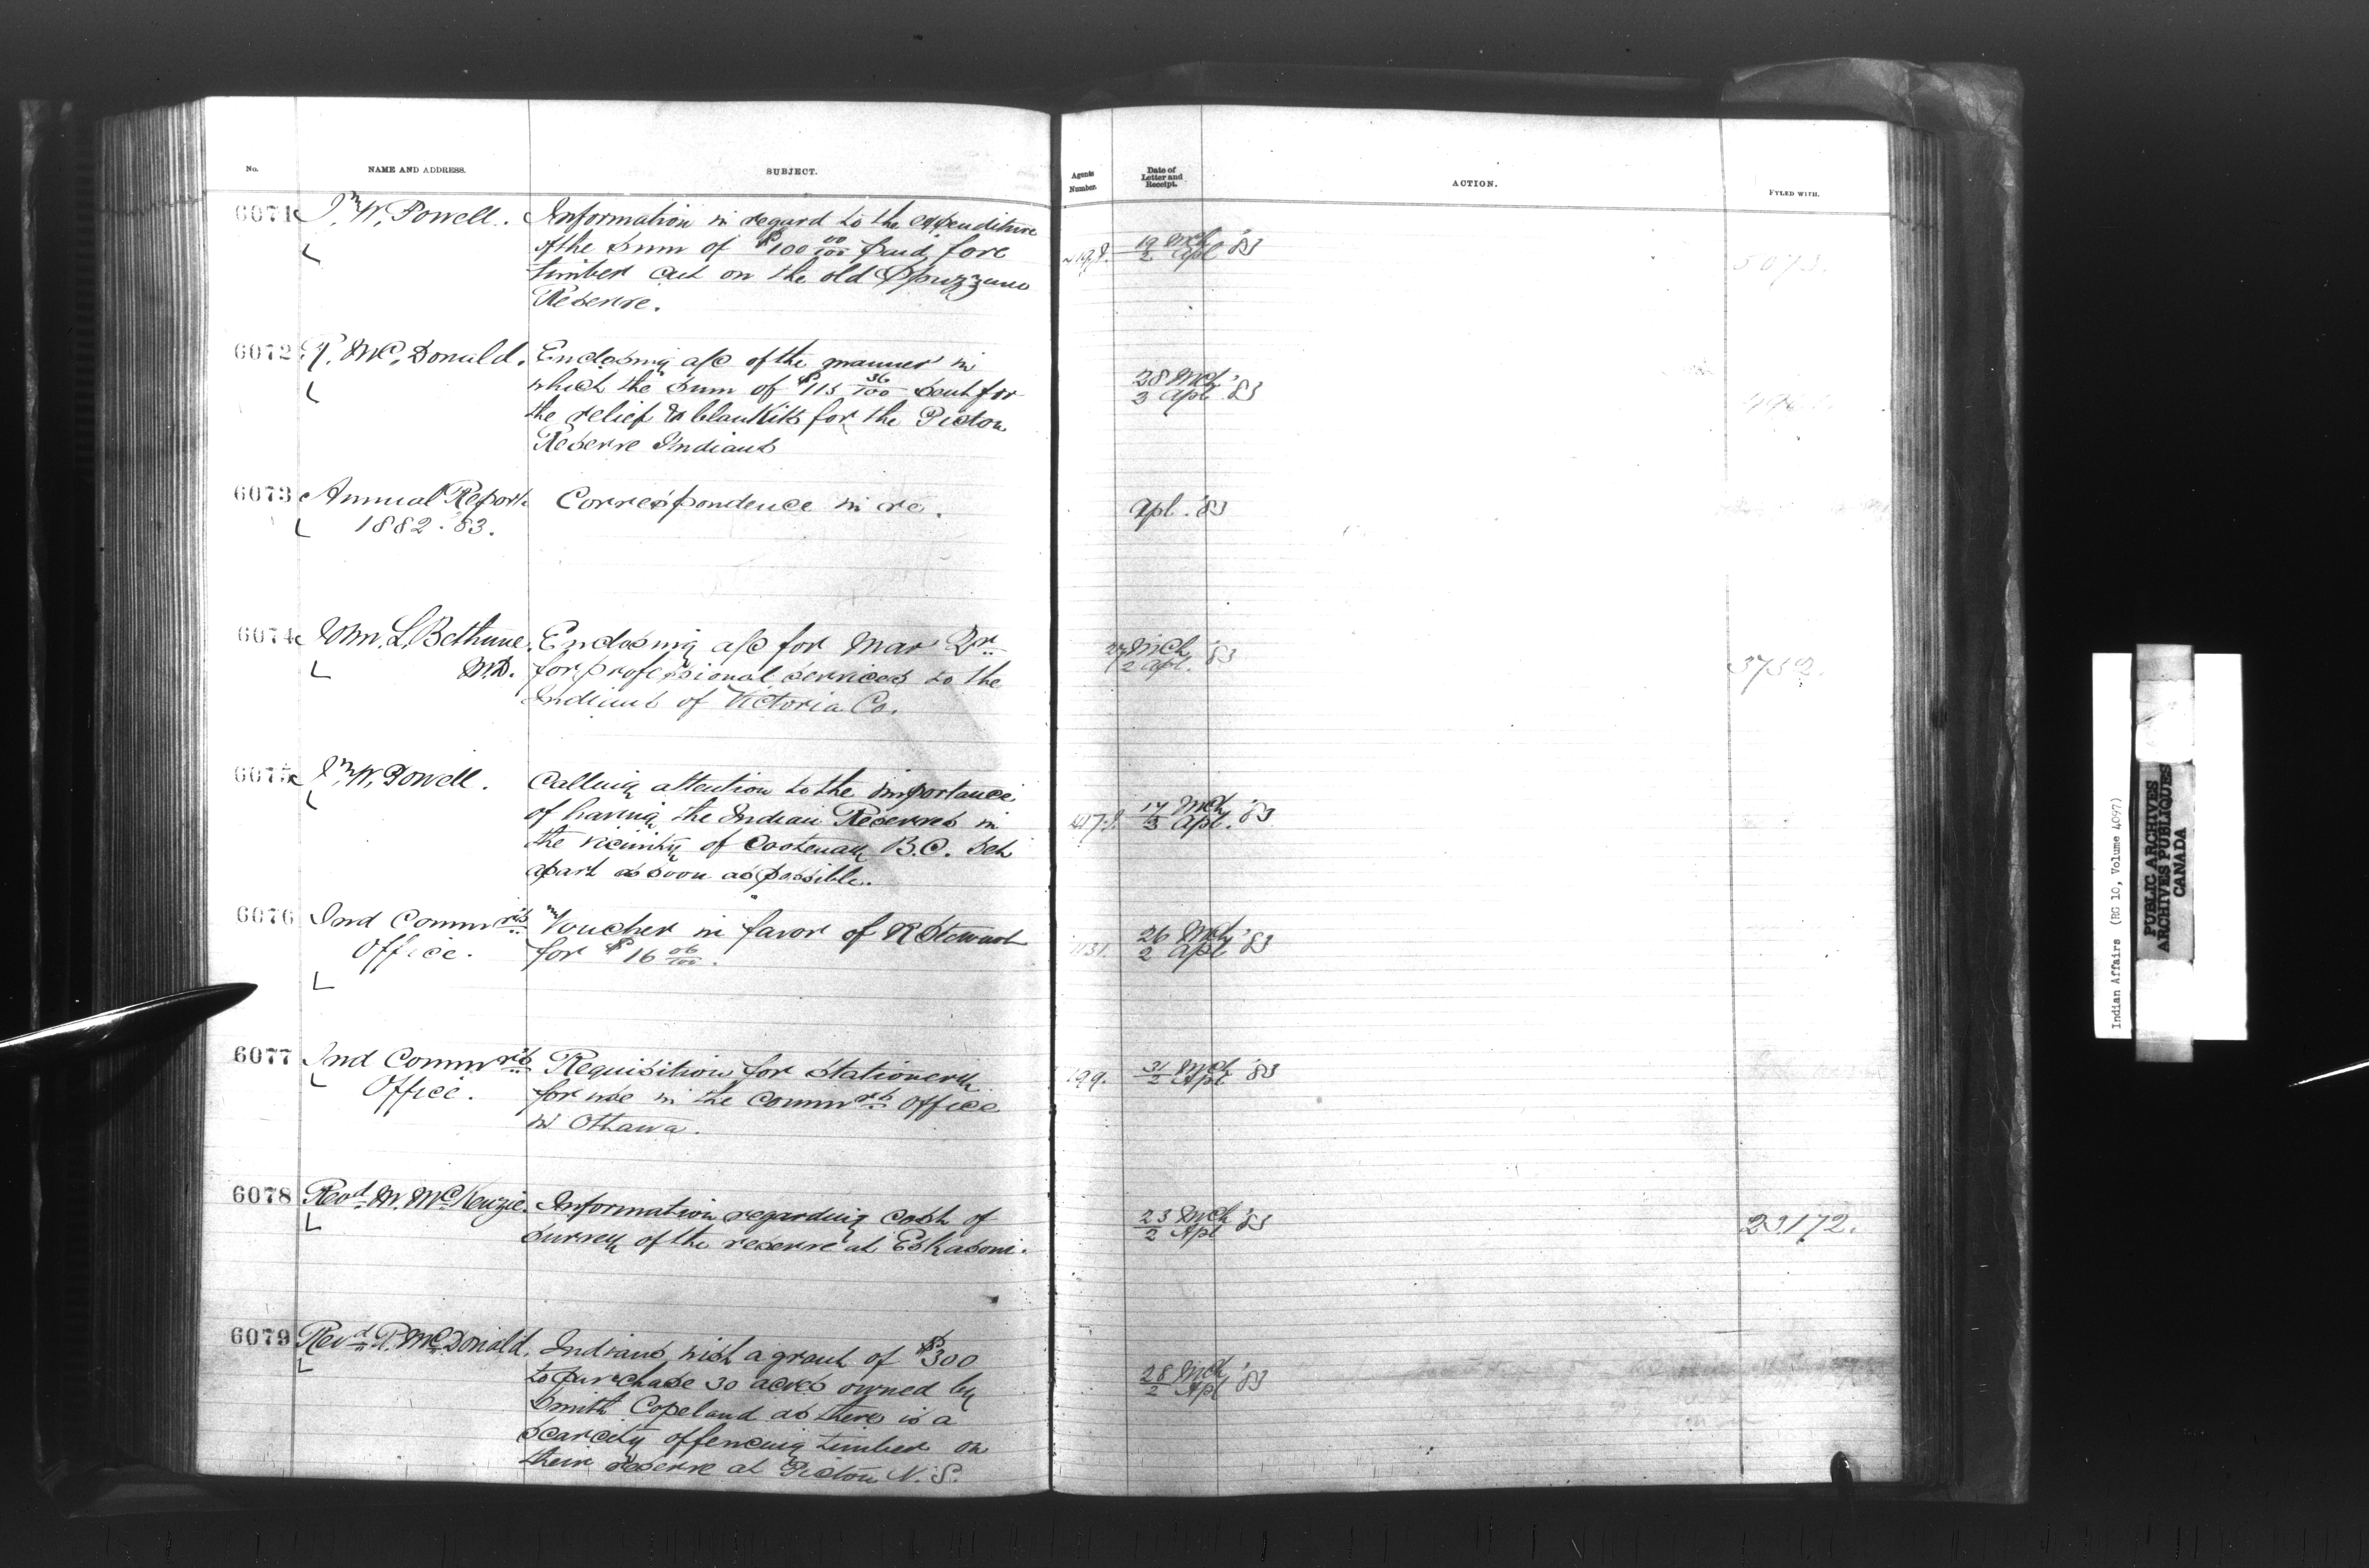 No. NAME AND ADDRESS. SUBJECT. Agents Number. Date of Letter and Receipt. ACTION. FYLED WITH.
6071 I. W. Powell. Information in regard to the expenditure
of the sum of $100 00/100 paid for
timber cut on the old Spuzzum
Reserve.
19 Mch / 2 Apl '83
6072 R. McDonald. Enclosing a/c of the manner in
which the sum of $115 36/100 sent for
the relief & blankets for the Pictou
Reserve Indians
28 Mch / 3 Apl '83
6073 Annual Report Correspondence in re.
1882.'83.
Apl. '83
6074 Wm. L. Bethune. Enclosing a/c for Mar Qr.
M.D. for professional services to the
Indians of Victoria Co.
27 Mch / 2 Apl. '83
3752.
6075 I. W. Powell. Calling attention to the importance
of having the Indian Reserves in
the vicinity of Cootenay B.C. set
apart as soon as possible.
17 Mch / 3 Apl. '83
6076 Ind Commrs Voucher in favor of R Stewart
Office. for $16 06/100.
26 Mch / 2 Apl '83
6077 Ind Commrs Requisition for Stationery
Office. for use in the Commrs Office
in Ottawa.
199. 31 Mch / 2 Apl '83
6078 Revd M. McKenzie. Information regarding cost of
survey of the reserve at Eskasoni.
23 Mch / 2 Apl '83
23172.
6079 Revd R. McDonald. Indians wish a grant of $300
to purchase 30 acres owned by
Smith Copeland as there is a
scarcity of fencing timber on
their reserve at Pictou N.S.
28 Mch / 2 Apl '83
Indian Affairs (RG 10, Volume 4097)
PUBLIC ARCHIVES
ARCHIVES PUBLIQUES
CANADA